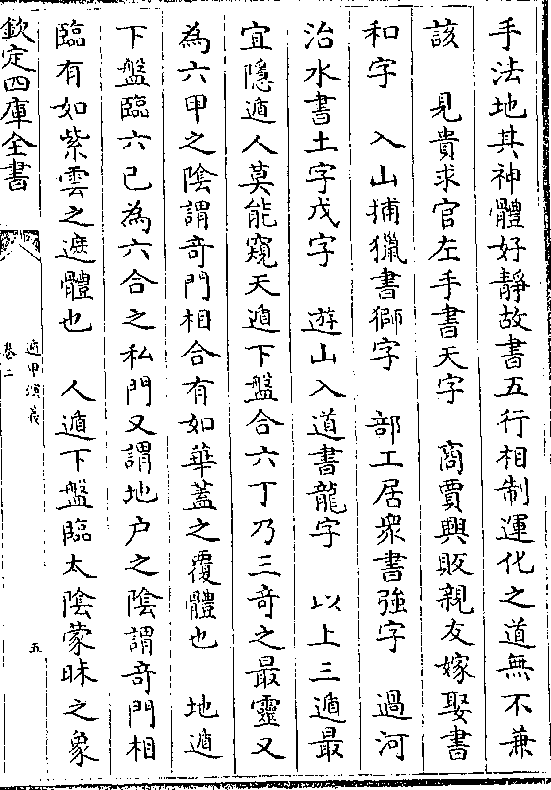 手法地其神體好靜故書五行相制運化之道無不兼
該　見貴求官左手書天字　商賈興販親友嫁娶書
和字　入山捕獵書獅字　部工居衆書強字　過河
治水書土字戊字　遊山入道書龍字　以上三遁最
宜隱遁人莫能窺天遁下盤合六丁乃三奇之最靈又
為六甲之陰謂奇門相合有如華蓋之覆體也　地遁
下盤臨六已為六合之私門又謂地户之陰謂奇門相
臨有如紫雲之遮體也　人遁下盤臨太陰蒙昧之象
欽定四庫全書
遁甲演義
卷二
五